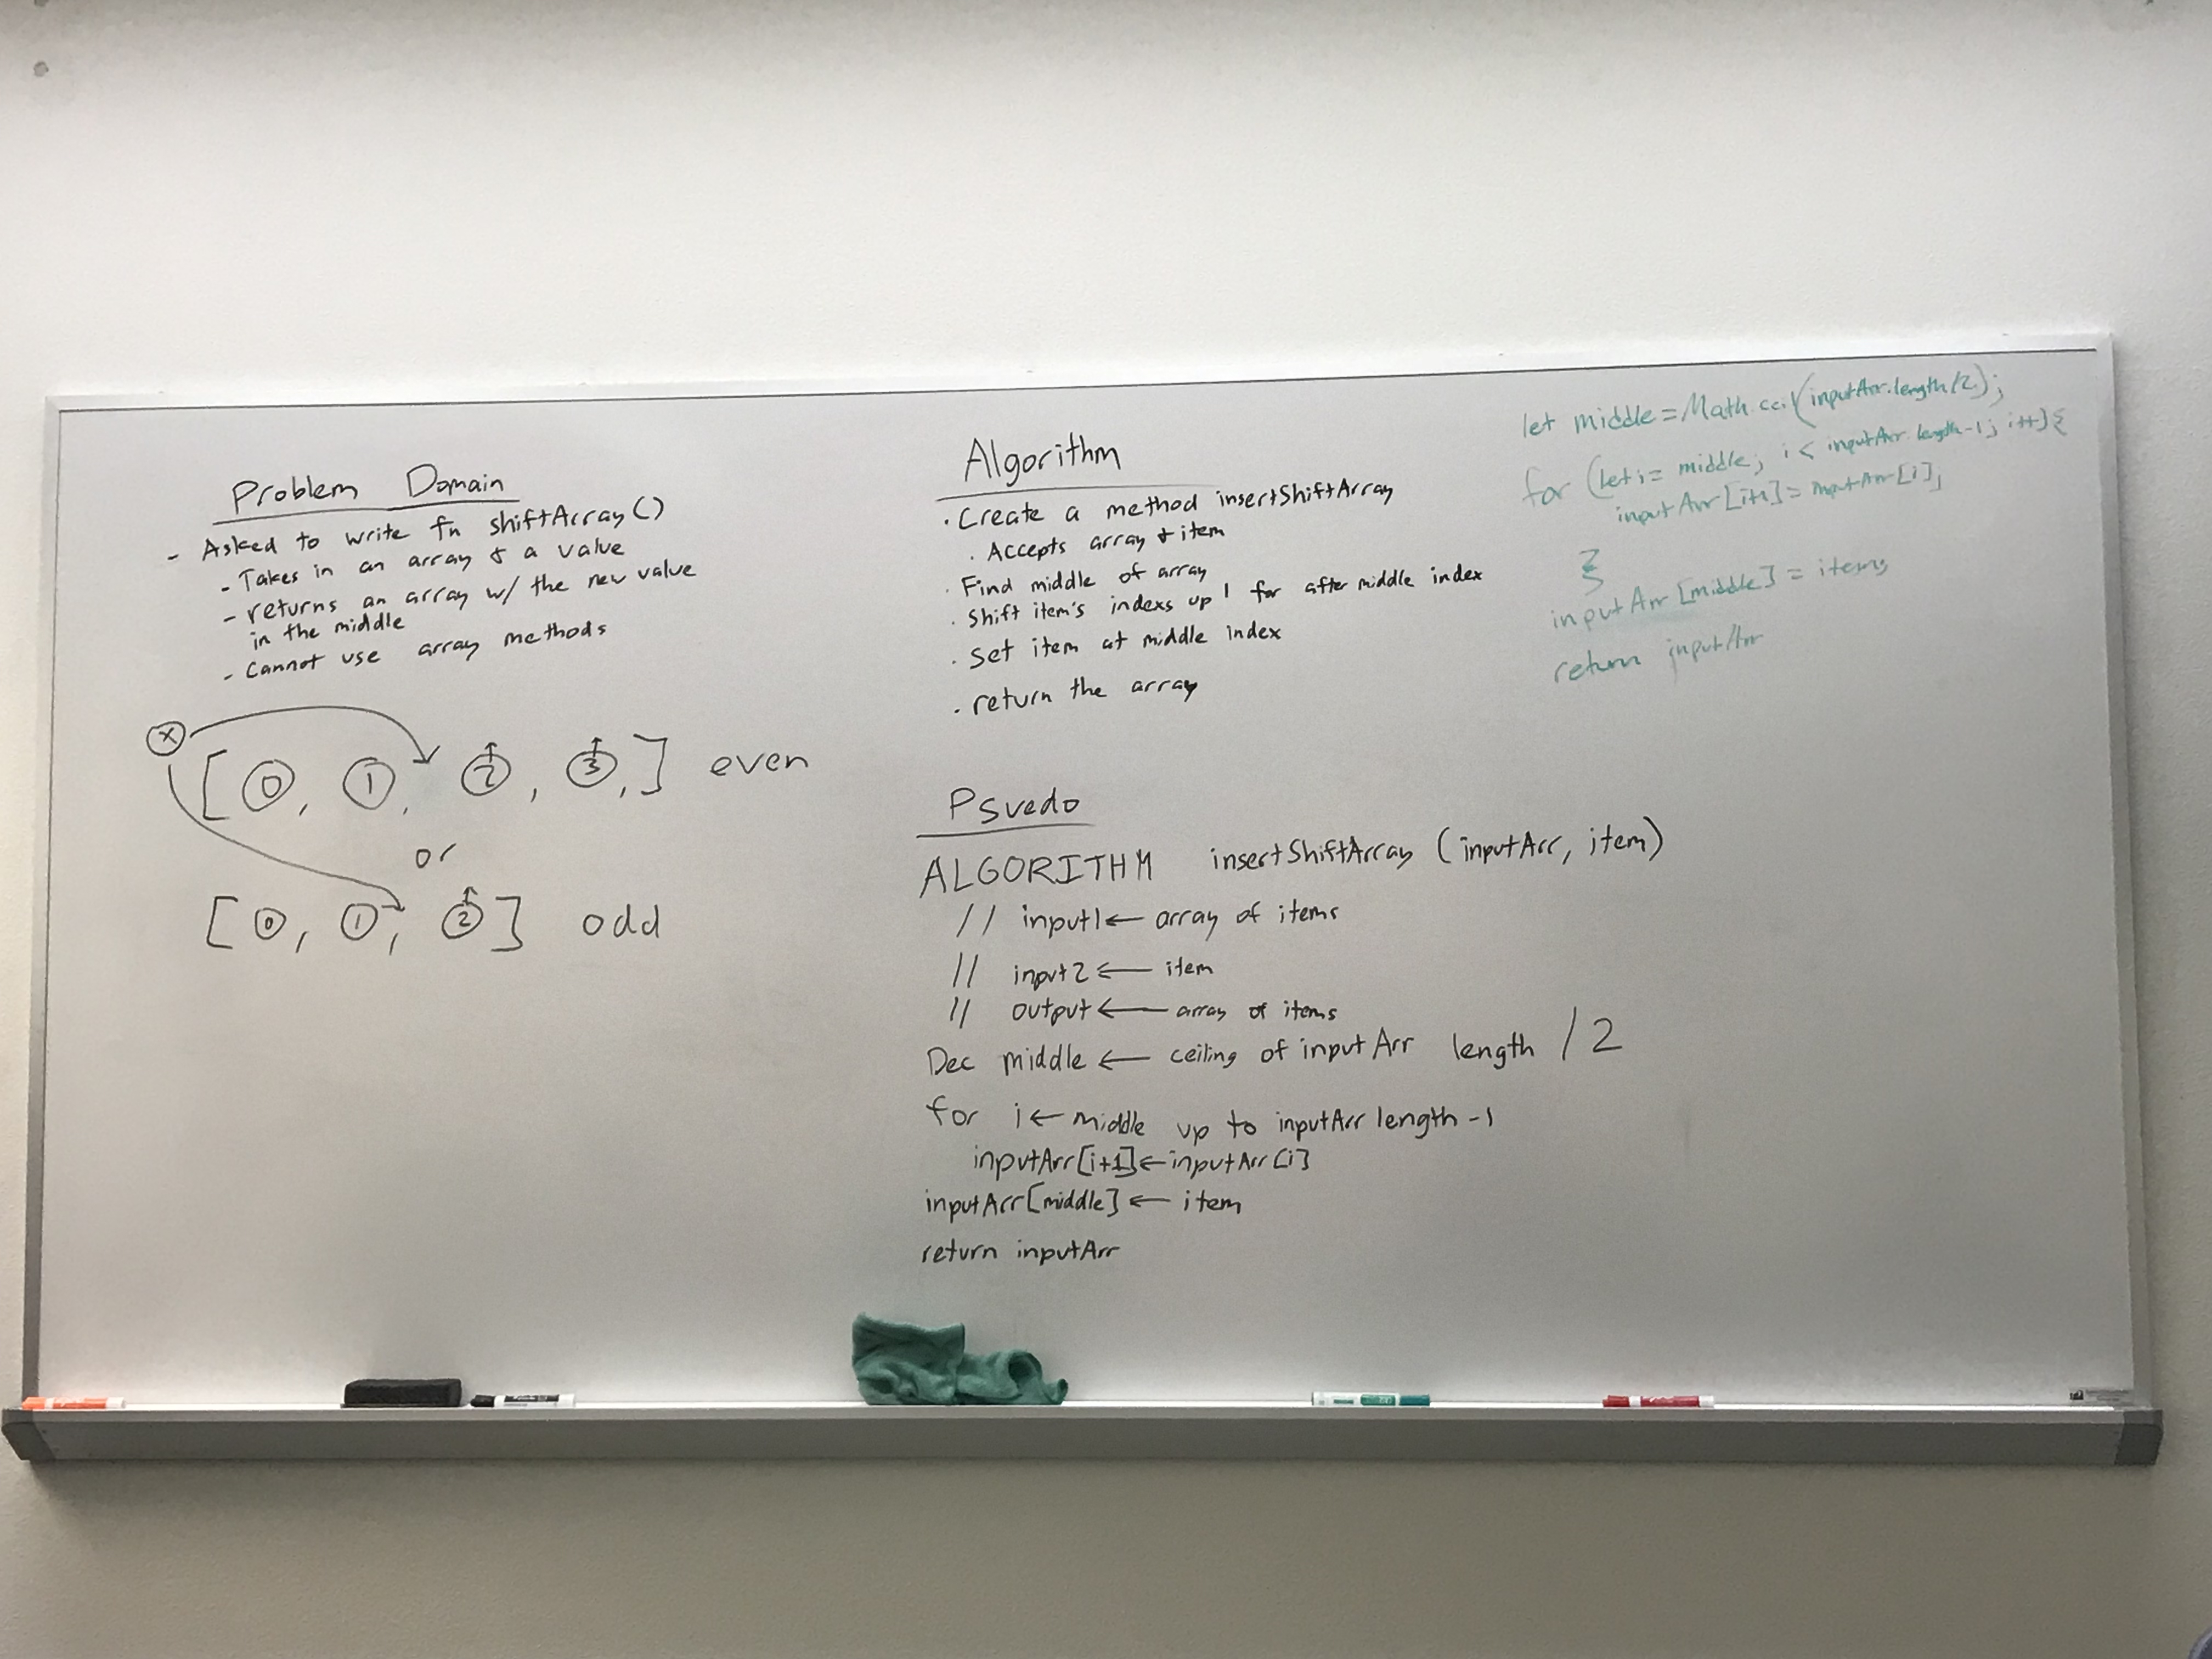 Problem Domain
- Asked to write fn shiftArray()
- Takes in an array & a value
- returns an array w/ the new value
in the middle
- cannot use array methods
X
[ 0, 1, 2, 3, ] even
or
[ 0, 1, 2 ] odd
Algorithm
· Create a method insertShiftArray
· Accepts array & item
· Find middle of array
· Shift item's indexs up 1 for after middle index
· Set item at middle index
· return the array
Psuedo
ALGORITHM insertShiftArray (inputArr, item)
// input1 ← array of items
// input2 ← item
// output ← array of items
Dec middle ← ceiling of inputArr length / 2
for i ← middle up to inputArr length -1
inputArr[i+1] ← inputArr[i]
inputArr[middle] ← item
return inputArr
let middle = Math.ceil(inputArr.length/2);
for (let i = middle; i < inputArr.length-1; i++){
inputArr[i+1] = inputArr[i];
}
inputArr[middle] = item;
return inputArr